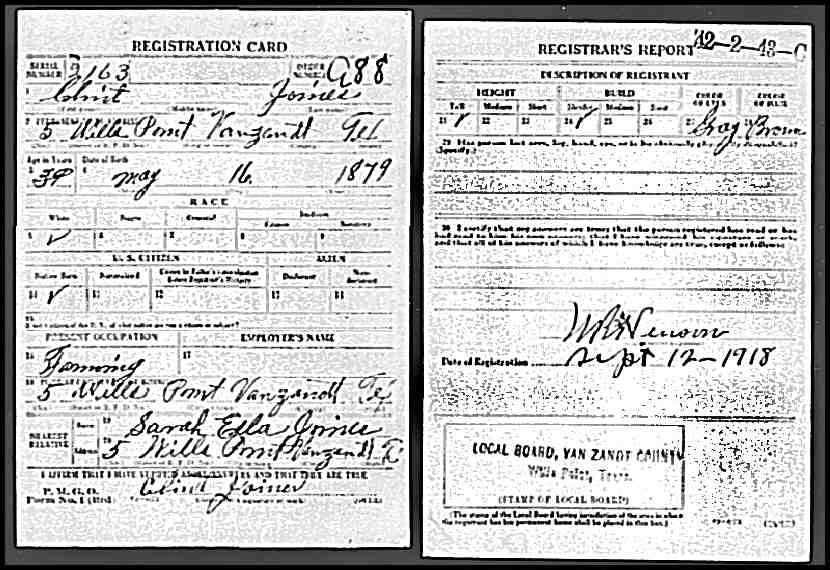 REGISTRATION CARD
SERIAL NUMBER 2163 ORDER NUMBER A88
1 Clint Joines
(First name) (Middle name) (Last name)
2 PERMANENT HOME ADDRESS
5 Wills Point Vanzandt Tex
Age in Years Date of Birth
3 39 4 May 16 1879
RACE
White Negro Oriental Indian
Citizen Noncitizen
5 ✓ 6 7 8 9
U. S. CITIZEN ALIEN
Native Born Naturalized Citizen by Father's Naturalization Before Registrant's Majority Declarant Non-declarant
10 ✓ 11 12 13 14
15
If not a citizen of the U. S., of what nation are you a citizen or subject?
PRESENT OCCUPATION EMPLOYER'S NAME
16 Farming 17
18
5 Wills Point Vanzandt Tex
NEAREST RELATIVE Name 19 Sarah Ella Joines
Address 20 5 Wills Point Vanzandt T
I AFFIRM THAT I HAVE VERIFIED ABOVE ANSWERS AND THAT THEY ARE TRUE
P. M. G. O.
Form No. 1 (Red) Clint Joines
REGISTRAR'S REPORT 42-2-43-C
DESCRIPTION OF REGISTRANT
HEIGHT BUILD COLOR OF EYES COLOR OF HAIR
Tall Medium Short Slender Medium Stout
21 ✓ 22 23 24 ✓ 25 26 27 Gray 28 Brown
29 Has person lost arm, leg, hand, eye, or is he obviously physically disqualified?
(Specify.)
30 I certify that my answers are true; that the person registered has read or has
had read to him his own answers; that I have witnessed his signature or mark,
and that all of his answers of which I have knowledge are true, except as follows:
Date of Registration Sept 12-1918
LOCAL BOARD, VAN ZANDT COUNTY
Wills Point, Texas.
(STAMP OF LOCAL BOARD)
(The stamp of the Local Board having jurisdiction of the area in which
the registrant has his permanent home shall be placed in this box.)